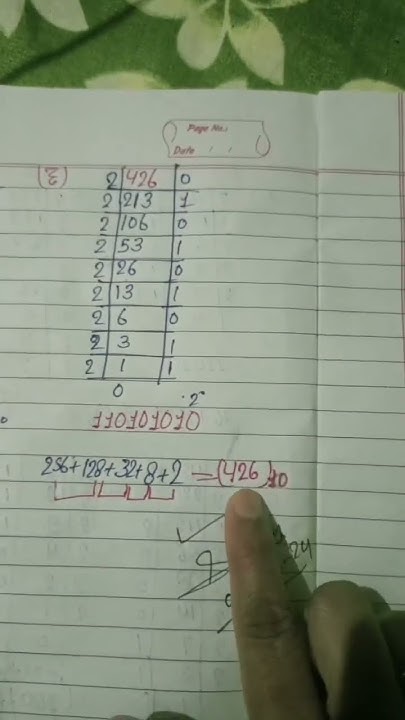 Page No.:
Date / /
(3)
2 426 0
2 213 1
2 106 0
2 53 1
2 26 0
2 13 1
2 6 0
2 3 1
2 1 1
0
110101010
256+128+32+8+2 = (426)10
24